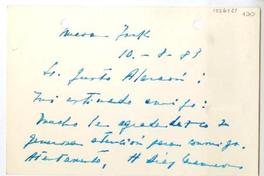 Nueva York
10-8-83
Sr. Justo Alarcón:
Mi estimado amigo:
Mucho le agradezco su
generosa atención para conmigo.
Atentamente, H Díaz